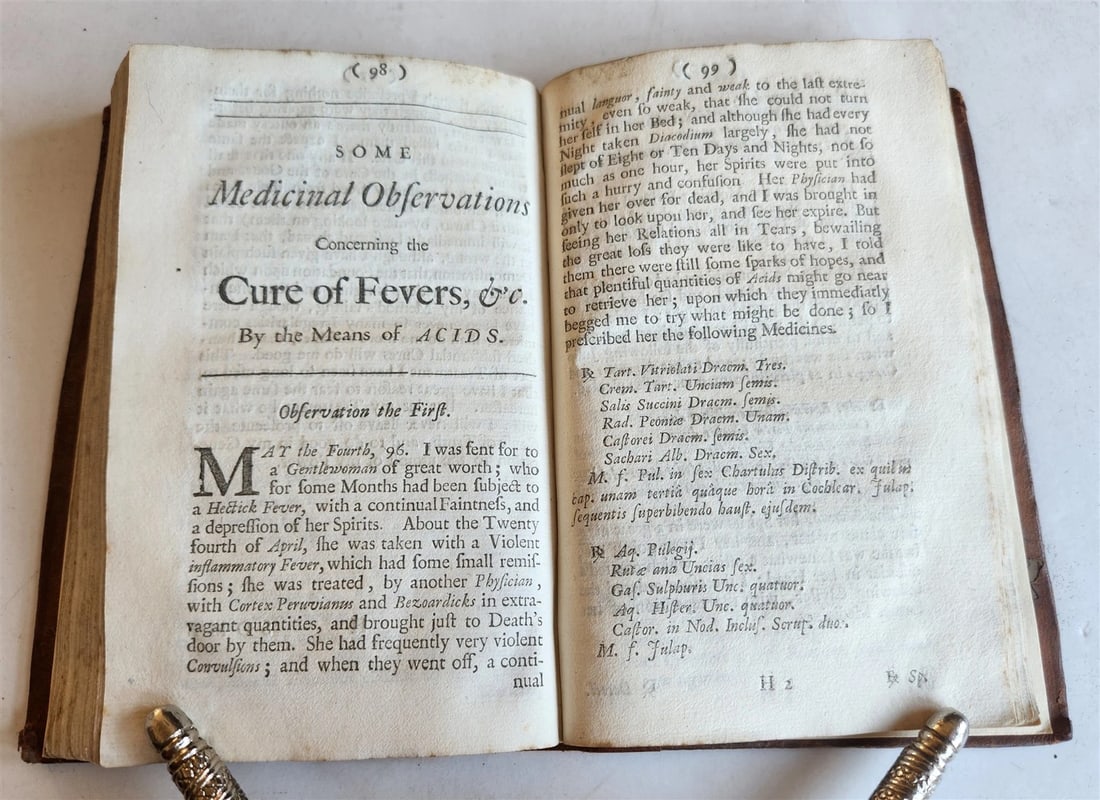 ( 98 )
SOME
Medicinal Obſervations
Concerning the
Cure of Fevers, &c.
By the Means of ACIDS.
Obſervation the Firſt.
MAY the Fourth, '96. I was ſent for to
a Gentlewoman of great worth; who
for ſome Months had been ſubject to
a Hectick Fever, with a continual Faintneſs, and
a depreſſion of her Spirits. About the Twenty
fourth of April, ſhe was taken with a Violent
inflammatory Fever, which had ſome ſmall remiſ-
ſions; ſhe was treated, by another Phyſician,
with Cortex Peruvianus and Bezoardicks in extra-
vagant quantities, and brought juſt to Death's
door by them. She had frequently very violent
Convulſions; and when they went off, a conti-
nual
( 99 )
nual languor, fainty and weak to the laſt extre-
mity, even ſo weak, that ſhe could not turn
her ſelf in her Bed; and although ſhe had every
Night taken Diacodium largely, ſhe had not
ſlept of Eight or Ten Days and Nights, not ſo
much as one hour, her Spirits were put into
ſuch a hurry and confuſion Her Phyſician had
given her over for dead, and I was brought in
only to look upon her, and ſee her expire. But
ſeeing her Relations all in Tears, bewailing
the great loſs they were like to have, I told
them there were ſtill ſome ſparks of hopes, and
that plentiful quantities of Acids might go near
to retrieve her; upon which they immediatly
begged me to try what might be done; ſo I
preſcribed her the following Medicines.
℞ Tart. Vitriolati Dracm. Tres.
Crem. Tart. Unciam ſemis.
Salis Succini Dracm. ſemis.
Rad. Peoniæ Dracm. Unam.
Caſtorei Dracm. ſemis.
Sachari Alb. Dracm. Sex.
M. f. Pul. in ſex Chartulas Diſtrib. ex quibus
cap. unam tertiâ quâque horâ in Cochlear. Julap.
ſequentis ſuperbibendo hauſt. ejuſdem.
℞ Aq. Pulegij.
Rutæ ana Uncias ſex.
Gaſ. Sulphuris Unc. quatuor.
Aq. Hiſter. Unc. quatuor.
Caſtor. in Nod. Incluſ. Scrup. duo.
M. f. Julap.
H 2
℞ Sp.